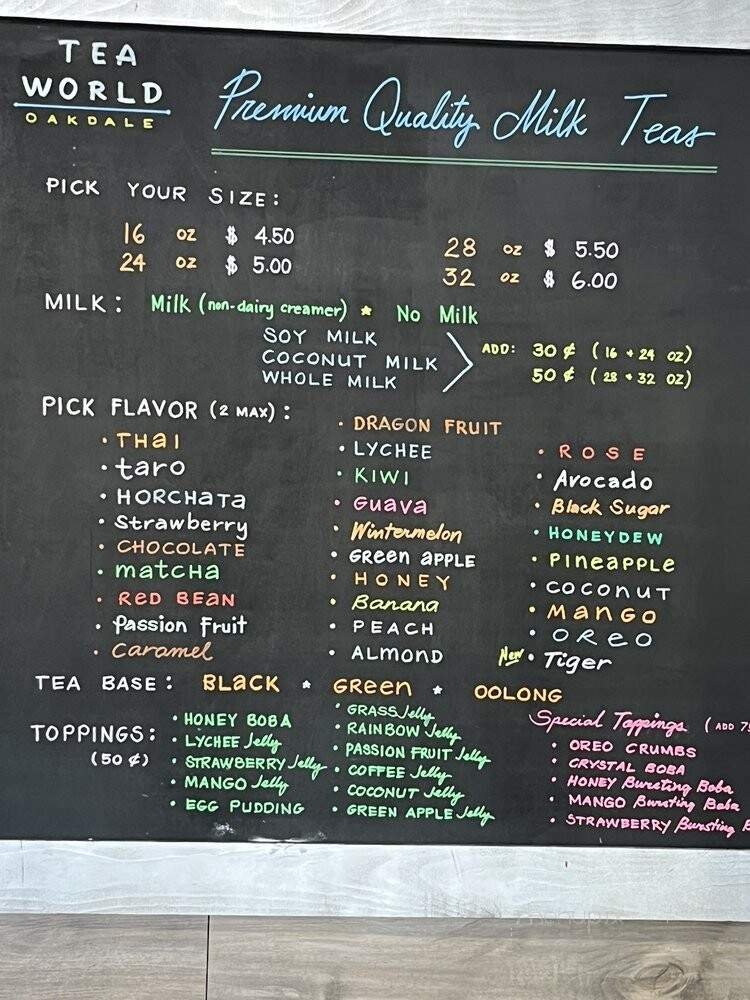 TEA
WORLD
OAKDALE
Premium Quality Milk Teas
PICK YOUR SIZE:
16 oz $ 4.50
24 oz $ 5.00
28 oz $ 5.50
32 oz $ 6.00
MILK: Milk (non-dairy creamer) * No Milk
SOY MILK
COCONUT MILK
WHOLE MILK
ADD: 30¢ (16 + 24 oz)
50¢ (28 + 32 oz)
PICK FLAVOR (2 MAX):
• THai
• taro
• HORCHaTa
• Strawberry
• CHOCOLATE
• matcha
• ReD BEaN
• Passion Fruit
• Caramel
• DRAGON FRUIT
• LYCHEE
• KIWI
• Guava
• Wintermelon
• GReen aPPLE
• HONEY
• Banana
• PEACH
• ALMOND
• ROSE
• Avocado
• Black Sugar
• HONEYDEW
• PINeaPPLe
• COCONUT
• MaNGO
• OReO
New • Tiger
TEA BASE: BLaCK * GReen * OOLONG
TOPPINGS:
(50¢)
• HONEY BOBA
• LYCHEE Jelly
• STRAWBERRY Jelly
• MANGO Jelly
• EGG PUDDING
• GRASS Jelly
• RAINBOW Jelly
• PASSION FRUIT Jelly
• COFFEE Jelly
• COCONUT Jelly
• GREEN APPLE Jelly
Special Toppings (ADD
• OREO CRUMBS
• CRYSTAL BOBA
• HONEY Bursting Boba
• MANGO Bursting Boba
• STRAWBERRY Bursting